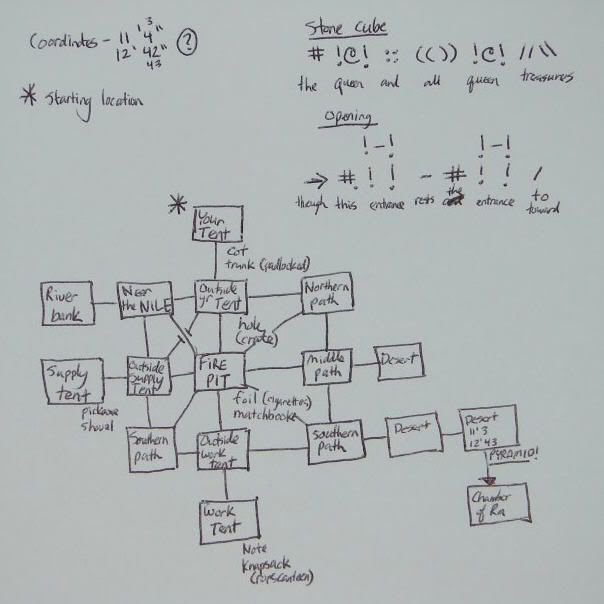 3
Coordinates - 11' 4"
12' 42" ?
43
* Starting location
Stone Cube
# !@! :: (()) !@! //\\
the queen and all queen treasures
Opening
!-! !-!
→ #. ! ! - # ! ! /
though this entrance rests the entrance to
toward
*
Your
Tent
cot
trunk (padlocked)
River
bank
Near
the NILE
Outside
yr Tent
Northern
path
hole
(crate)
Supply
tent
Outside
Supply
Tent
FIRE
PIT
middle
path
Desert
pickaxe
shovel
foil (cigarettes)
matchbook
Southern
path
Outside
work
tent
Southern
path
Desert
Desert
11' 3
12' 43
PYRAMID!
Chamber
of Ra
Work
Tent
Note
knapsack